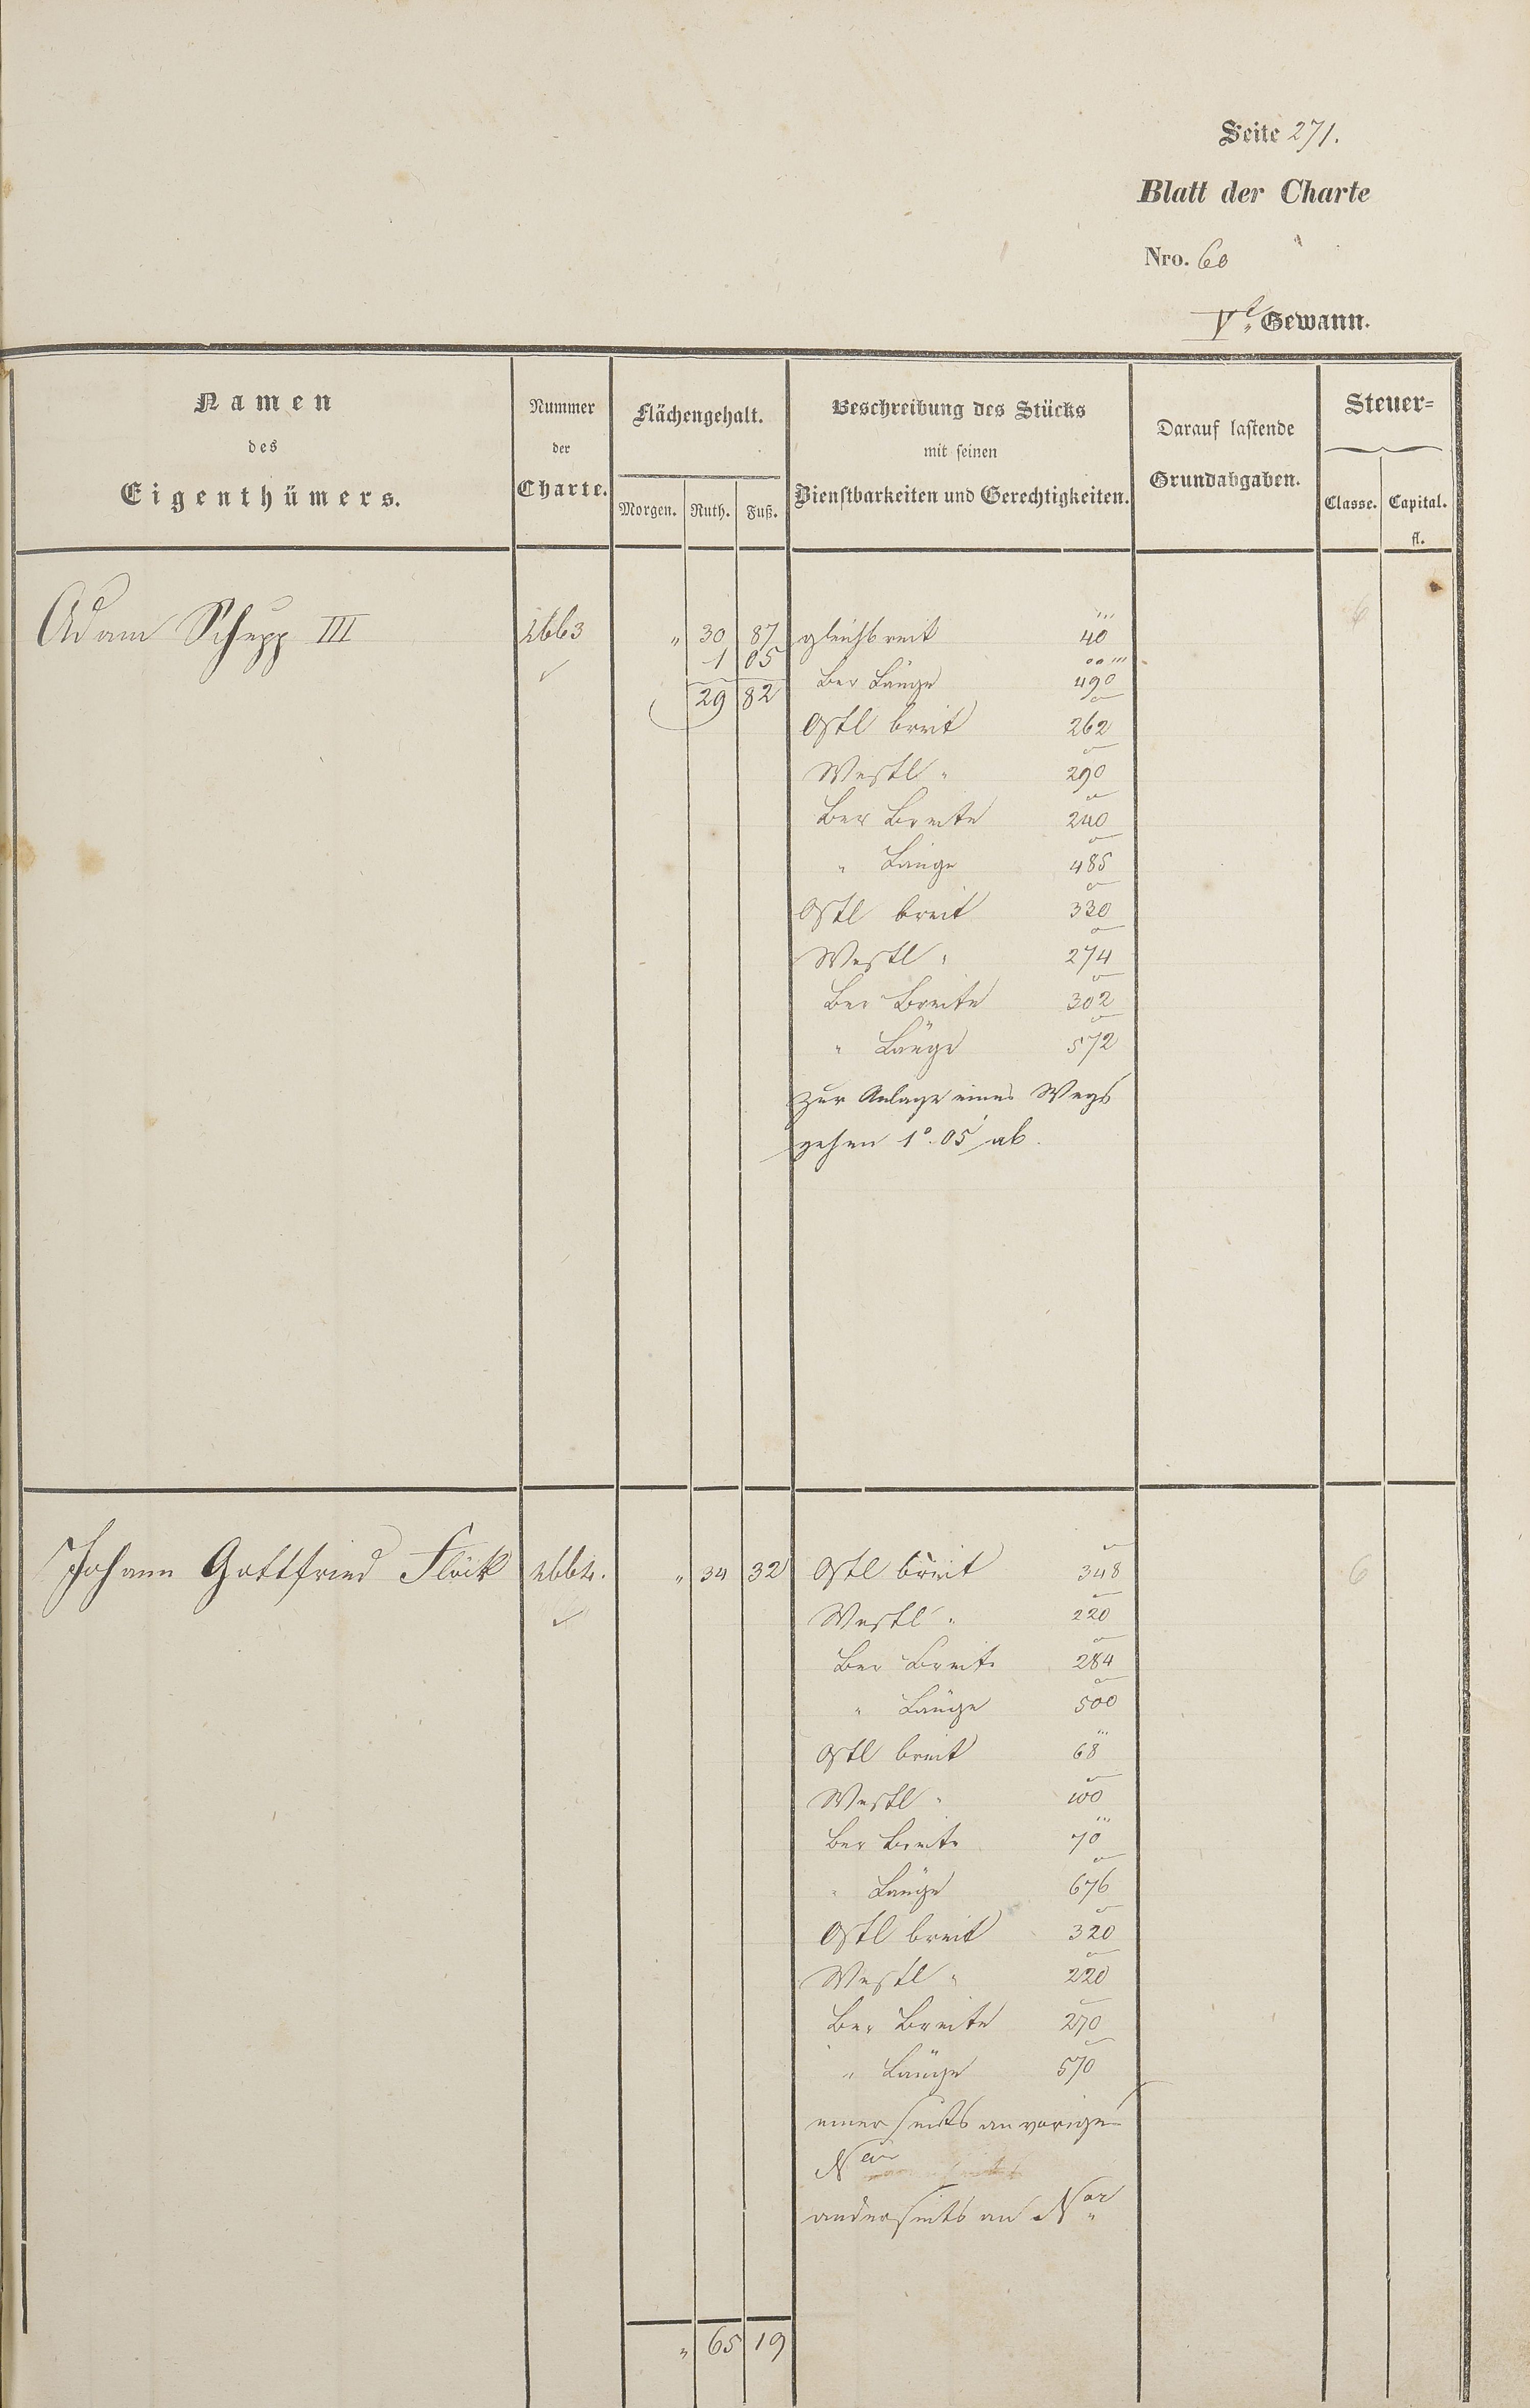 Seite 271.
Blatt der Charte
Nro. 60
V.te Gewann.
Namen des Eigenthümers.
Nummer der Charte.
Flächengehalt.
Morgen. Ruth. Fuß.
Beschreibung des Stücks mit seinen Dienstbarkeiten und Gerechtigkeiten.
Darauf lastende Grundabgaben.
Steuer=
Classe. Capital. fl.
Adam Schupp III 2663 " 30 87 gleichbreit 40 6
1 05 Ber Länge 490
29 82
Ostl breit 262
Westl " 290
Ber Breite 240
" Länge 485
Ostl breit 330
Westl " 274
Ber Breite 302
" Länge 572
zur Anlage eines Wegs
gehen 1° 05' ab.
Johann Gottfried Flöck 2664. " 34 32 Ostl breit 348 6
Westl " 220
Ber Breite 284
" Länge 500
Ostl breit 68
Westl " 100
Ber Breite 70
" Länge 676
Ostl breit 320
Westl " 220
Ber Breite 270
" Länge 570
einerseits an vorige
Nor
anderseits an Nor "
" 65 19